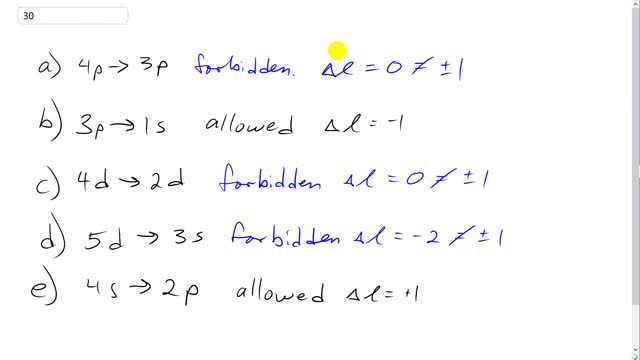 30
a) 4p → 3p forbidden. Δl = 0 ≠ ±1
b) 3p → 1s allowed Δl = -1
c) 4d → 2d forbidden Δl = 0 ≠ ±1
d) 5d → 3s forbidden Δl = -2 ≠ ±1
e) 4s → 2p allowed Δl = +1